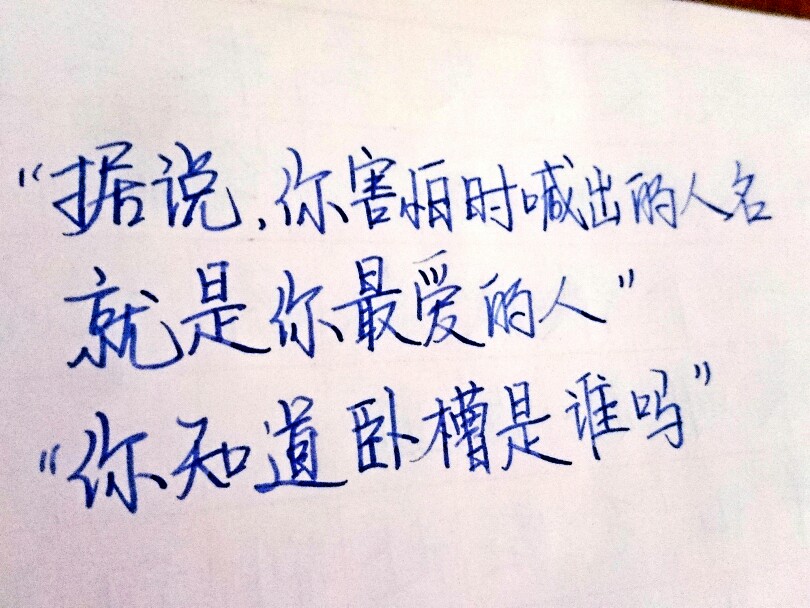 “据说,你害怕时喊出的人名
就是你最爱的人”
“你知道卧槽是谁吗”